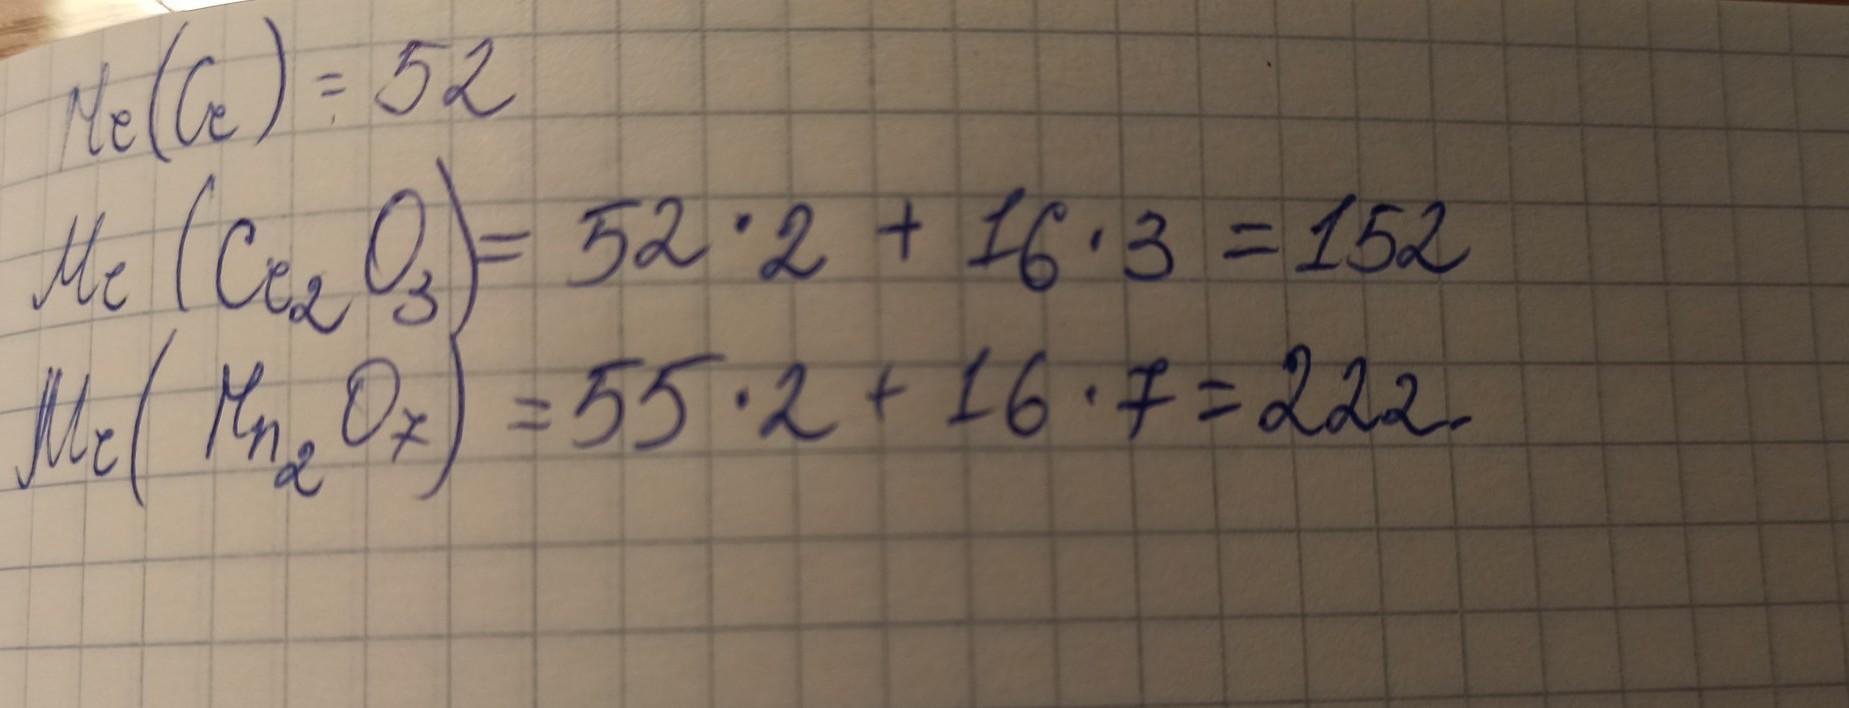 Mr(Cr) = 52
Mr(Cr₂O₃) = 52·2 + 16·3 = 152
Mr(Mn₂O₇) = 55·2 + 16·7 = 222.